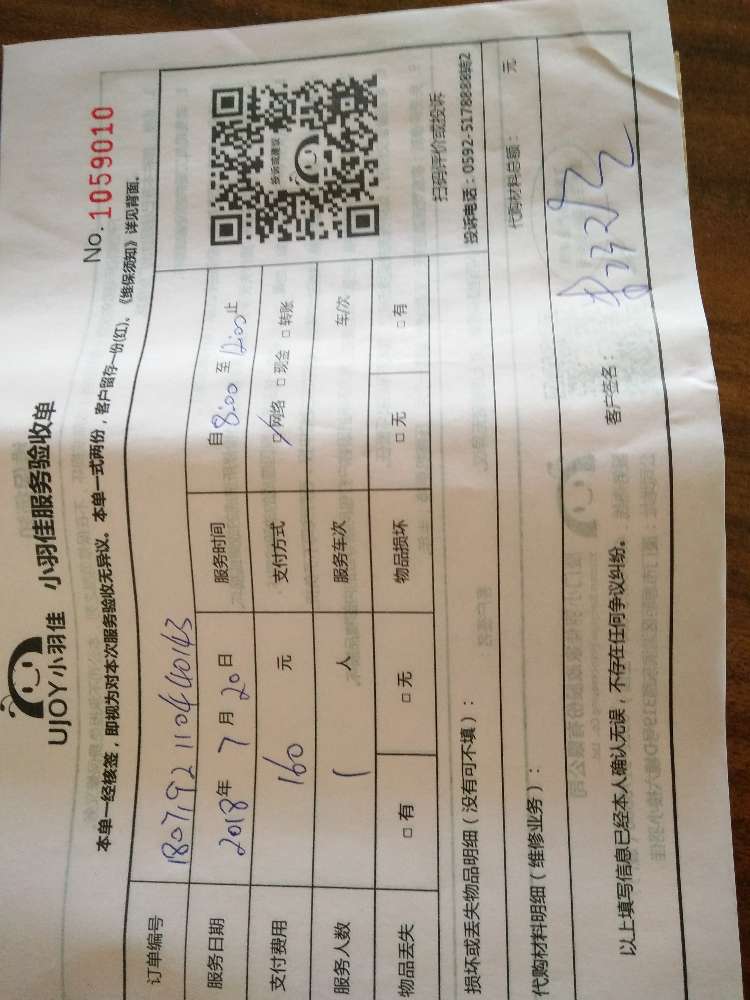 UJOY小羽佳 小羽佳服务验收单
No. 1059010
本单一经核签，即视为对本次服务验收无异议。本单一式两份，客户留存一份(红)。《维保须知》详见背面。
订单编号 18071921104440143
服务日期 2018年 7月 20日 服务时间 自 8:00 至 12:00 止
支付费用 160 元 支付方式 □网络 □现金 □转账
服务人数 1 人 服务车次 车/次
物品丢失 □有 □无 物品损坏 □无 □有
投诉或建议
扫码评价或投诉
投诉电话：0592-5178888转2
损坏或丢失物品明细（没有可不填）：
代购材料明细（维修业务）： 代购材料总额： 元
以上填写信息已经本人确认无误，不存在任何争议纠纷。 客户签名：